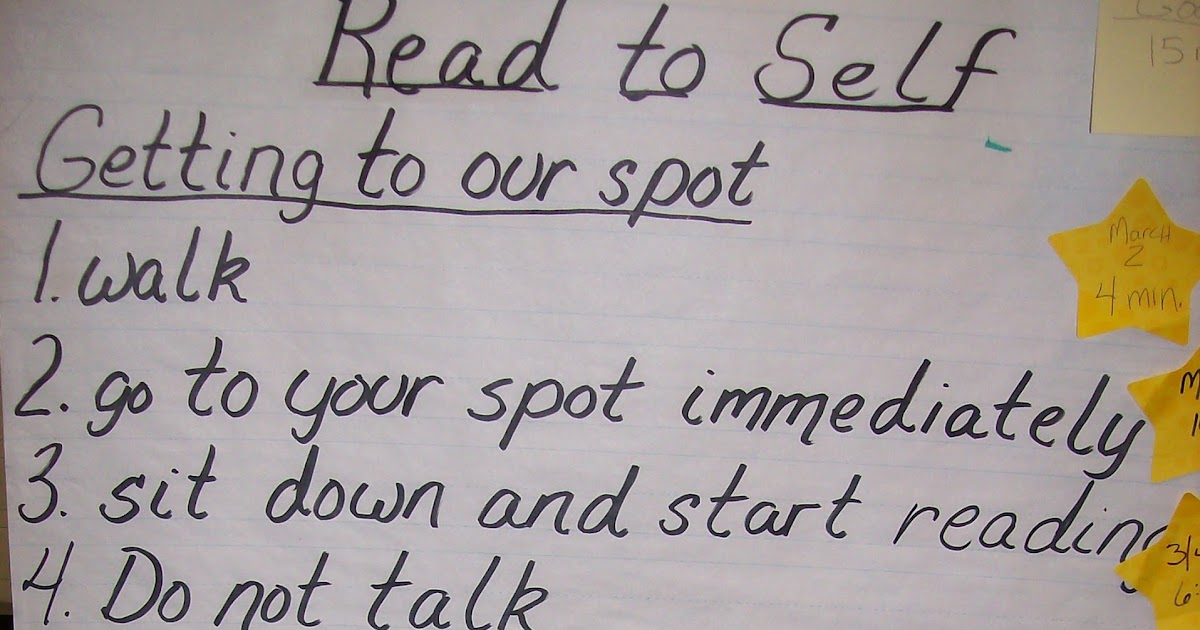 Read to Self
Getting to our spot
1. walk
2. go to your spot immediately
3. sit down and start reading
4. Do not talk
15
March
2
4 min.
3/4
6: